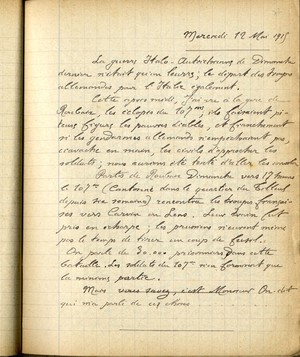 Mercredi 12 Mai 1915
La guerre Italo-Autrichienne de Dimanche
dernier n'était qu'un leurre; le départ des troupes
allemandes pour l'Italie également.
Cette après-midi, j'ai vu à la gare de
Roubaix les éclopés du 107me; ils faisaient pi-
teuse figure, les pauvres diables, et franchement
si les gendarmes allemands n'empêchaient pas,
cravache en main, les civils d'approcher les
soldats; nous aurions été tenté d'aller les
Partis de Roubaix Dimanche vers 17 heures
le 107me (Cantonné dans le quartier du Tilleul
depuis six semaines) rencontra les troupes françai-
ses vers Carvin ou Lens. Leur train fut
pris en écharpe; les prussiens n'eurent même
pas le temps de tirer un coup de fusil.
On parle de 30.000 prisonniers dans cette
bataille. Les soldats du 107me n'en formaient que
la minime partie.
Mais vous savez, c'est Monsieur On-dit
qui m'a parlé de ces choses